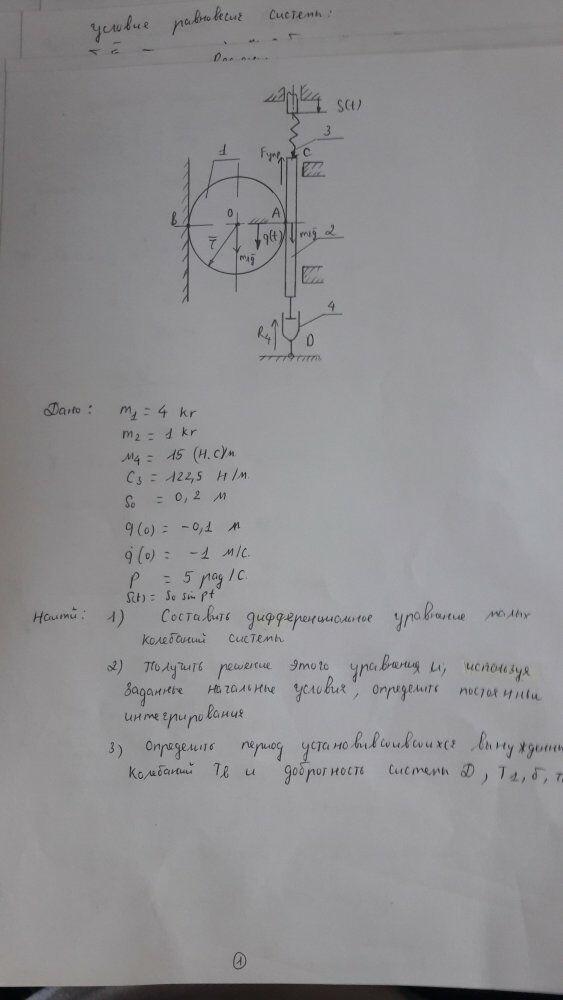 условие равновесия системы:
S(t)
3
Fупр
C
1
B
O
A
q(t)
m₁g̅
m₂g̅
2
r̅
4
R₄
D
Дано: m₁ = 4 кг
m₂ = 1 кг
M₄ = 15 (Н.С)/м
C₃ = 122,5 Н/м
S₀ = 0,2 м
q(0) = -0,1 м
q̇(0) = -1 м/с.
P = 5 рад/с.
S(t) = S₀ sin pt
Найти: 1) Составить дифференциальное уравнение малых
колебаний системы
2) Получить решение этого уравнения и, используя
заданные начальные условия, определить постоянные
интегрирования
3) Определить период установившихся вынужденн
колебаний Tв и добротность системы D, T₁, δ,
1